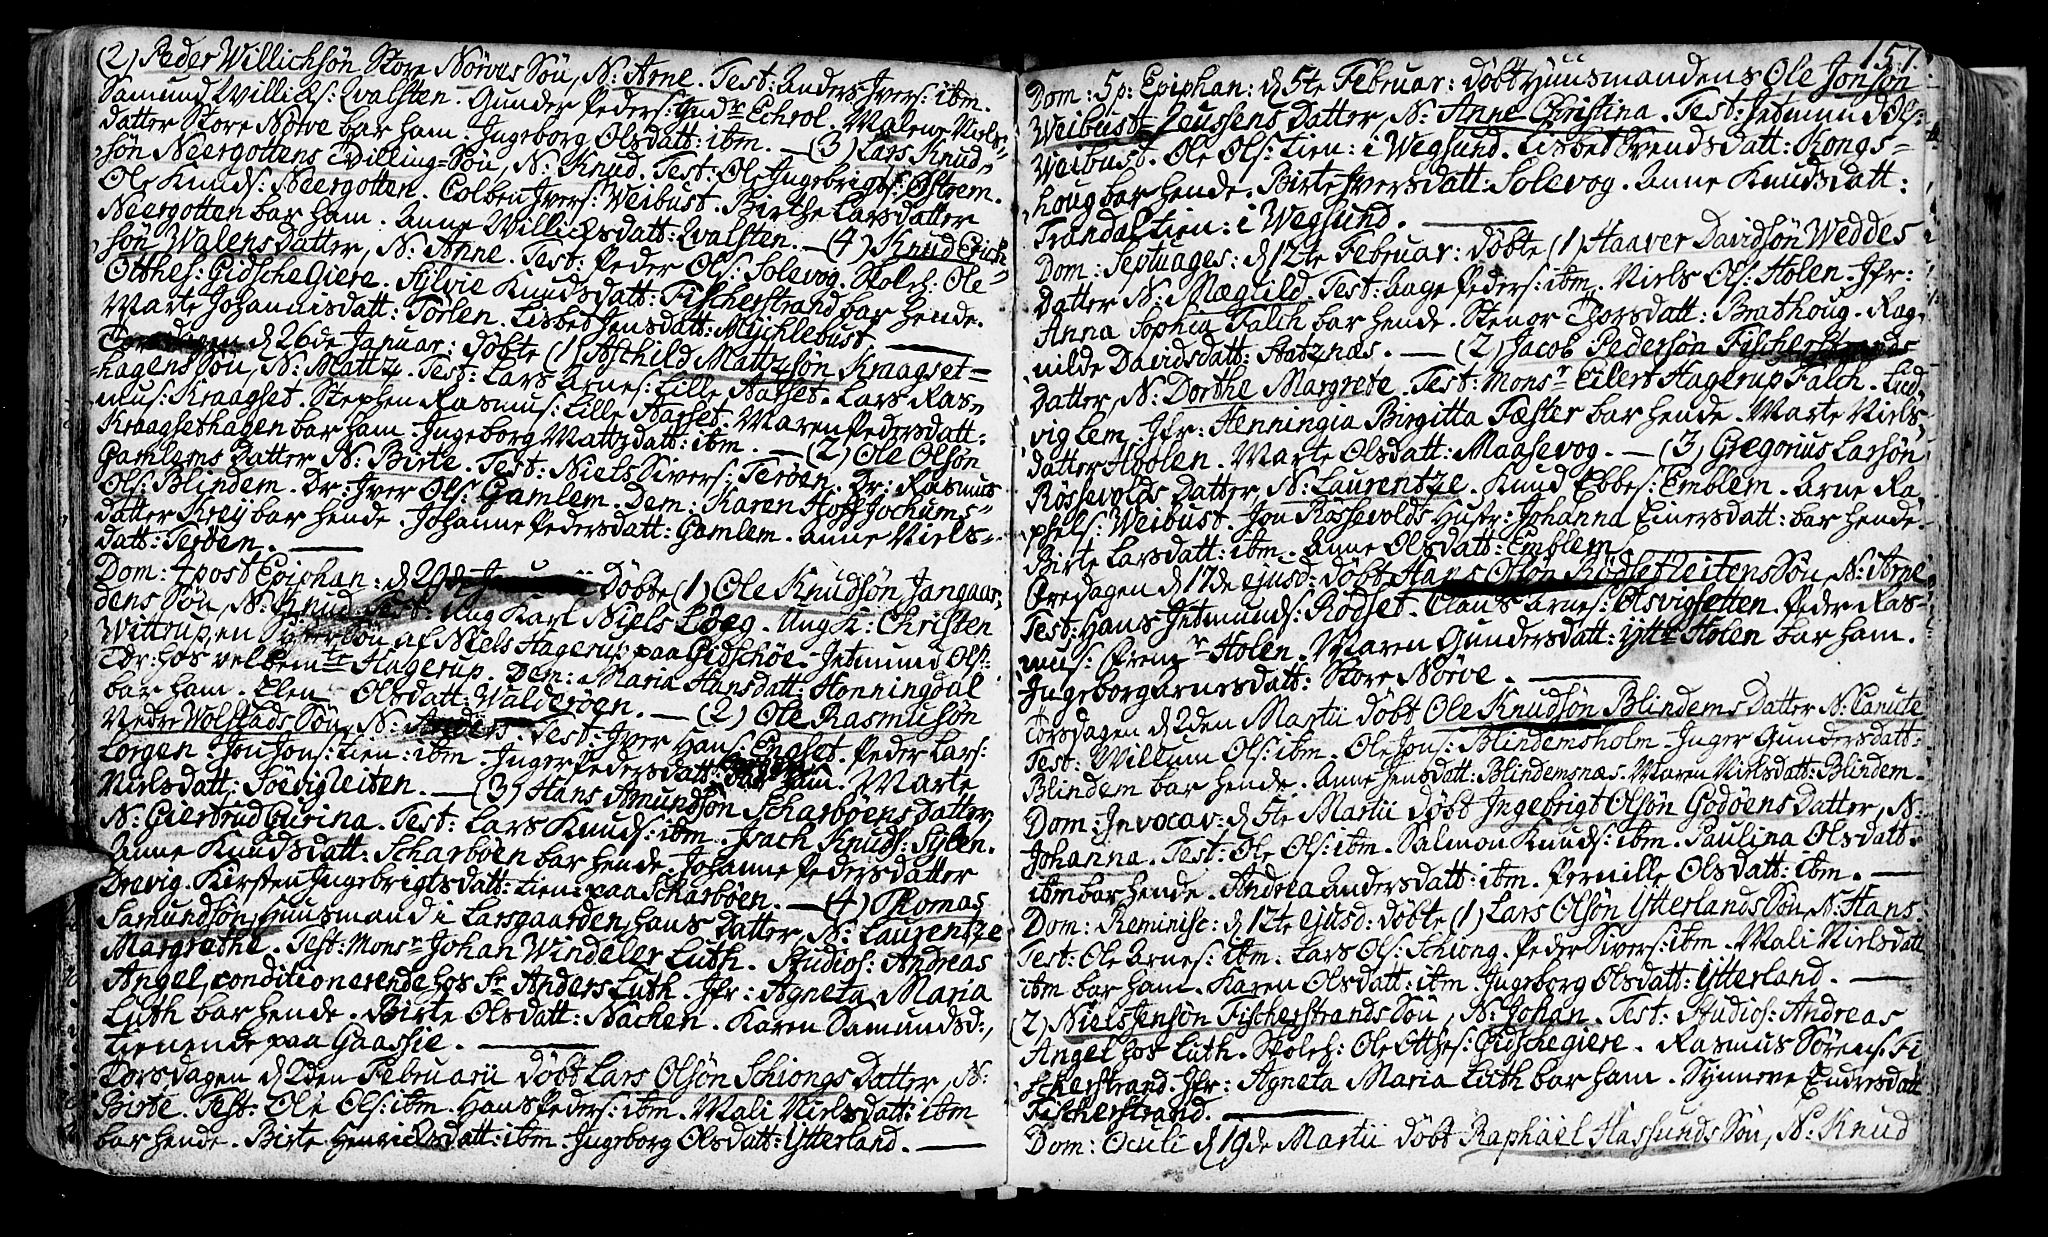 (2) Peder Willichsøn Store Nørves Søn, N: Arne. Test: Anders Ivers: ibm.
Samund Willichs: Qvalsten. Gunder Peders: Ind Nielsdatter Store Nørve bar ham. Ingeborg Olsdatt: ibm. — (3) Lars Knud-
søn Neergottens Tvilling-Søn, N: Knud. Test: Ole Ingebrigts: Østrem.
Ole Knuds: Neergotten. Colben Ivers: Weibust. Birthe Larsdatter
Neergotten bar ham. Anne Willichsdatt: Qvalsten. — (4) Knud Erich-
søn Walens Datter, N: Anne. Test: Peder Ols: Solevog. Skoleh: Ole
Otthes: Gidsche Giere. Sylvie Knudsdatt: Fischerstrand bar hende.
Marte Johannisdatt: Torlen. Lisbet Jensdatt: Mychlebust. —
d 26de Januar: døbte (1) Aschild Mattzsøn Kraagset-
hagens Søn, N: Mattz. Test: Lars Arnes: Lille Aarset. Lars Ras-
mus: Kraagset. Stephen Rasmus: Lille Aarset. Maren Pedersdatt:
Kraagsethagen bar ham. Ingeborg Mattzdatt: ibm. — (2) Ole Olsøn
Gamlems Datter N: Birte. Test: Niels Sivers: Terøen. Dr: Rasmus
Ols: Blindem. Dr: Iver Ols: Gamlem. Dem: Karen Hoff Jochums-
datter Kreij bar hende. Johanne Pedersdatt: Gamlem. Anne Niels-
datt: Terøen. —
Dom: 4 post Epiphan: d 29de Døbte (1) Ole Knudsøn Jangaar-
dens Søn, N: Knud. Test: Ung Karl Niels Løeg. Ung K: Christen
Wittrup, en af Niels Hagerup paa Gidschøe. Jetmund Ols:
tdr: hos velbemte Hagerup. Dem: Maria Hansdatt: Honningdal
bar ham. Elen Olsdatt: Walderøen. — (2) Ole Rasmusøn
Nedre Wolstads Søn, N: Anders. Test: Iver Hans: Engset. Peder Lars:
Lorgen. Jon Jons: tien: ibm. Inger Pedersdatt: bar ham. Marte
Nielsdatt: Soevigleiten. — (3) Hans Amundsøn Scharbøens Datter,
N: Giertrud Gurina. Test: Lars Knuds: ibm. Isach Knuds: Sylen.
Anne Knudsdatt: Scharbøen bar hende. Johanne Pedersdatter
Drevig. Kirsten Ingebrigtsdatt: tien: paa Scharbøen. — (4) Thomas
Samundsøn, Huusmand i Larsgaarden, hans Datter, N: Laurentze
Margrethe. Test: Monsr Johan Windeler Luth. Studios: Andreas
Angel, conditionerende hos Sr Anders Luth. Jfr: Agneta Maria
Luth bar hende. Birte Olsdatt: Nachen. Karen Samundsd:,
tienende paa Gaassie. —
Torsdagen d 2den Februarii døbt Lars Olsøn Schiongs Datter, N:
Birte. Test: Ole Ols: ibm. Hans Peders: ibm. Mali Nielsdatt: ibm
bar hende. Birte Henrichsdatt: ibm. Ingeborg Olsdatt: Ytterland. —
157.
Dom: 5 p: Epiphan: d 5te Februar: døbt Huusmandens Ole Jonsøn
Weibust Datter, N: Anne Christina. Test: Jetmund Ols:
Weibust. Ole Ols: tien: i Wegsund. Lisbet Svendsdatt: Kongs-
houg bar hende. Birte Iversdatt: Solevog. Anne Knudsdatt:
Trandal tien: i Wegsund. —
Dom: Septuages: d 12te Februar: døbte (1) Haaver Davidsøn Weddes
Datter N: Mægtild. Test: Aage Peders: ibm. Niels Ols: Holen. Jfr:
Anna Sophia Falch bar hende. Stenor Thorsdatt: Brathoug. Rag-
nilde Davidsdatt: Aatznæs. — (2) Jacob Pedersøn Fischerstrands
Datter, N: Dorthe Margrete. Test: Monsr Eilert Hagerup Falch. Lud-
vig Lem. Jfr: Henningia Birgitta Fæster bar hende. Marte Niels-
datter Hoolen. Marte Olsdatt: Maasevog. — (3) Gregorius Larsøn
Røssevolds Datter, N: Laurentze. Knud Ebbes: Emblem. Arne Ra-
phels: Weibust. Jon Røssevolds Hustr: Johanna Einersdatt: bar hende.
Birte Larsdatt: ibm. Anne Olsdatt: Emblem. —
Fredagen d 17de ejusd: døbt Hans Olsøn Søn, N: Arne
Test: Hans Jetmunds: Rødset. Claus Arnes: Olsvigsetten. Peder Ras-
mus: Holen. Maren Gundersdatt: Ytte Holen bar ham.
Ingeborg Arnesdatt: Store Nørve. —
Torsdagen d 2den Martii døbt Ole Knudsøn Blindems Datter N: Canute
Test: Willum Ols: ibm. Ole Jons: Blindemsholm. Inger Gundersdatt:
Blindem bar hende. Anne Jensdatt: Blindemsnæs. Maren Nielsdatt: Blindem.
Dom: Invocav: d 5te Martii døbt Ingebrigt Olsøn Godøens Datter, N:
Johanna. Test: Ole Ols: ibm. Salmon Knuds: ibm. Paulina Olsdatt:
ibm bar hende. Andrea Andersdatt: ibm. Pernille Olsdatt: ibm. —
Dom: Reminisc: d 12te ejusd: døbte (1) Lars Olsøn Ytterlands Søn, N: Hans.
Test: Ole Arnes: ibm. Lars Ols: Schiong. Peder Sivers: ibm. Mali Nielsdatt
ibm bar ham. Karen Olsdatt: ibm. Ingeborg Olsdatt: Ytterland. —
(2) Niels Fischerstrands Søn, N: Johan. Test: Studios: Andreas
Angel hos Luth. Skoleh: Ole Otthes: Gidschegiere. Rasmus Sørens: Fi-
scherstrand. Jfr: Agneta Maria Luth bar ham. Synneve Endresdatt
Fischerstrand. —
Dom: Oculi d 19de Martii døbt Raphael Hassunds Søn, N: Knud